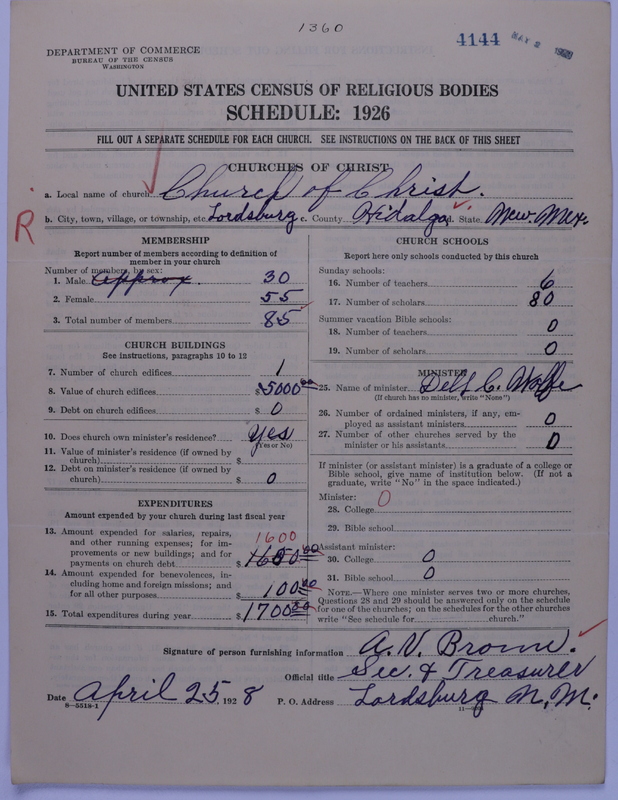 1360
DEPARTMENT OF COMMERCE
BUREAU OF THE CENSUS
WASHINGTON
4144 MAY 2 1928
UNITED STATES CENSUS OF RELIGIOUS BODIES
SCHEDULE: 1926
FILL OUT A SEPARATE SCHEDULE FOR EACH CHURCH. SEE INSTRUCTIONS ON THE BACK OF THIS SHEET
CHURCHES OF CHRIST
a. Local name of church Church of Christ.
R
b. City, town, village, or township, etc. Lordsburg c. County Hidalgo d. State New. Mex.
MEMBERSHIP
Report number of members according to definition of
member in your church
Number of members, by sex:
1. Male approx. 30
2. Female 55
3. Total number of members 85
CHURCH BUILDINGS
See instructions, paragraphs 10 to 12
7. Number of church edifices 1
8. Value of church edifices $5000 00
9. Debt on church edifices $ 0
10. Does church own minister's residence? Yes
(Yes or No)
11. Value of minister's residence (if owned by
church) $
12. Debt on minister's residence (if owned by
church) $ 0
EXPENDITURES
Amount expended by your church during last fiscal year
13. Amount expended for salaries, repairs, 1600
and other running expenses; for im-
provements or new buildings; and for
payments on church debt $ 1650 00
14. Amount expended for benevolences, in-
cluding home and foreign missions; and
for all other purposes $ 100 00
15. Total expenditures during year $ 1700 00
CHURCH SCHOOLS
Report here only schools conducted by this church
Sunday schools:
16. Number of teachers 6
17. Number of scholars 80
Summer vacation Bible schools:
18. Number of teachers 0
19. Number of scholars 0
MINISTER
25. Name of minister Dell C. Wolfe
(If church has no minister, write "None")
26. Number of ordained ministers, if any, em-
ployed as assistant ministers 0
27. Number of other churches served by the
minister or his assistants 0
If minister (or assistant minister) is a graduate of a college or
Bible school, give name of institution below. (If not a
graduate, write "No" in the space indicated.)
Minister:
28. College 0
29. Bible school
Assistant minister:
30. College 0
31. Bible school 0
NOTE.—Where one minister serves two or more churches,
Questions 28 and 29 should be answered only on the schedule
for one of the churches; on the schedules for the other churches
write "See schedule for church."
Signature of person furnishing information A. V. Brown.
Official title Sec. & Treasurer
Date April 25, 1928 P. O. Address Lordsburg N. M.
8—5518-1